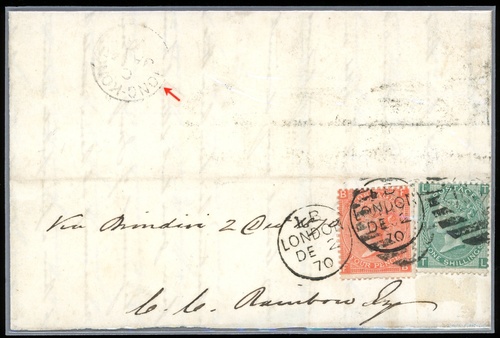 HONG-KONG
Via Brindisi 2 Dec
C. C. Rainbow Esq
LONDON
DE 2
70
LONDON
DE 2
70
FOUR PENCE
ONE SHILLING